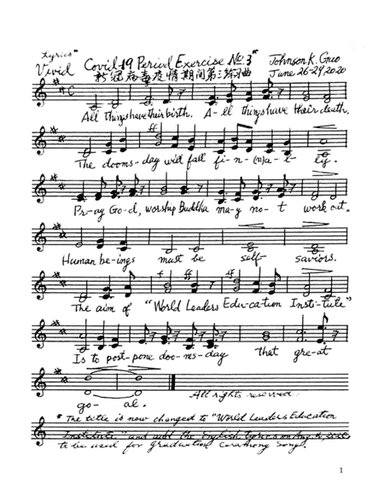 "Lyrics"
Covid-19 Period Exercise No. 3*
Vivid
新冠病毒疫情期间第三练习曲
Johnson K. Gao
June 26-29, 2020
All Things have their birth. A-ll things have their death.
The dooms-day will fall fi-n-(n)a-l-ly.
Pr-ay God, worship Buddha ma-y no-t work out.
Human be-ings must be self-saviors.
The aim of "World Leaders Edu-ca-tion Insti-tute"
Is to post-pone doo-ms-day That gre-at
go-al.
All rights reserved.
* The title is now changed to "World Leaders Education
Institute" and add the English lyrics on
to be used for graduation Song.
1